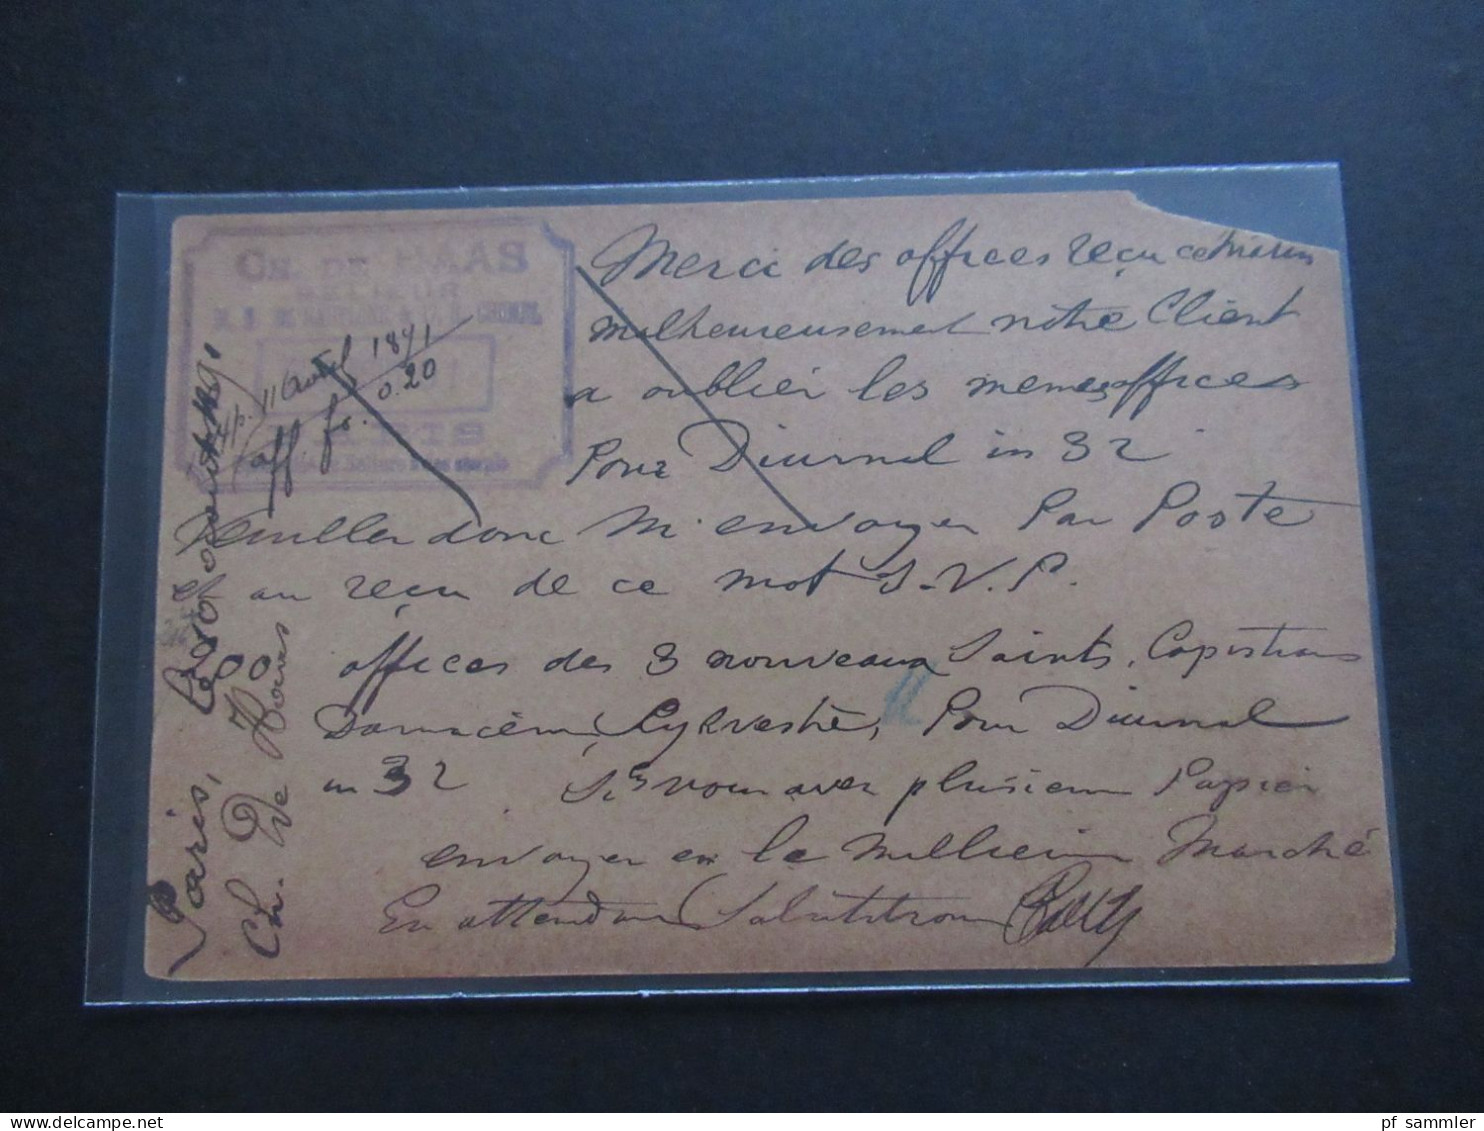 CH. DE HAAS
RELIEUR
PARIS
11 avril 1891
aff. fr. 0.20
Merci des offices reçu ce
malheureusement notre Client
a oublier les memes offices
Pour Diurnal in 32
Veuillez donc m'envoyer Par Poste
au reçu de ce mot S.V.P.
offices des 3 nouveaux Saints, Capistran
Damacene, Sylvestre, Pour Diurnal
in 32 Si vous avez plusieurs Papier
envoyer en le meilleur Marché
En attendant
Paris,
Ch. De Haas
pf_sammler